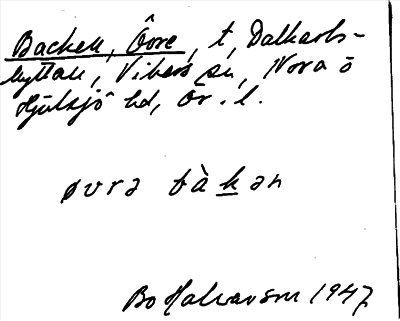 Backen, Övre, t, Dalkarls-
hyttan, Vikers sn, Nora o
Hjulsjö hd, Ör. l.
øvrə bàkən
Bo Halvarson 1947